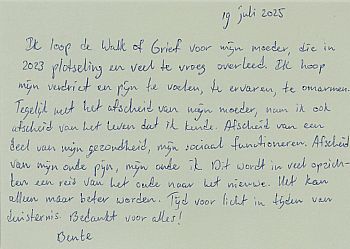 19 juli 2025
Ik loop de Walk of Grief voor mijn moeder, die in
2023 plotseling en veel te vroeg overleed. Ik hoop
mijn verdriet en pijn te voelen, te ervaren, te omarmen.
Tegelijk met het afscheid van mijn moeder, nam ik ook
afscheid van het leven dat ik kende. Afscheid van een
deel van mijn gezondheid, mijn sociaal functioneren. Afscheid
van mijn oude pijn, mijn oude ik. Dit wordt in veel opzich-
ten een reis van het oude naar het nieuwe. Het kan
alleen maar beter worden. Tijd voor licht in tijden van
duisternis. Bedankt voor alles!
Bente